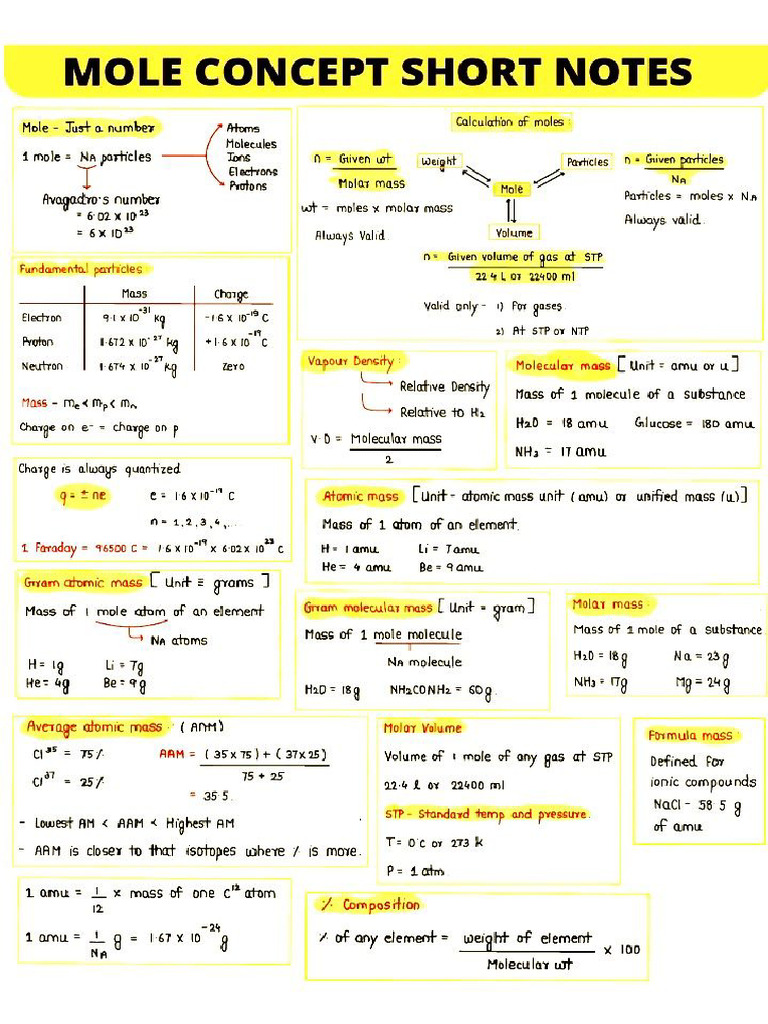 MOLE CONCEPT SHORT NOTES
Mole - Just a number
1 mole = NA particles
Atoms
Molecules
Ions
Electrons
Protons
Avagadro's number
= 6.02 x 10²³
= 6 x 10²³
Calculation of moles:
n = Given wt / Molar mass
wt = moles x molar mass
Always Valid.
Weight
Particles
Mole
Volume
n = Given particles / NA
Particles = moles x NA
Always valid.
n = Given volume of gas at STP / 22.4 L or 22400 ml
Valid only - 1) For gases.
2) At STP or NTP
Fundamental particles
Mass Charge
Electron 9.1 x 10⁻³¹ kg -1.6 x 10⁻¹⁹ C
Proton 1.672 x 10⁻²⁷ kg +1.6 x 10⁻¹⁹ C
Neutron 1.674 x 10⁻²⁷ kg Zero
Mass - me < mp < mn
Charge on e⁻ = charge on p
Vapour Density:
Relative Density
Relative to H2
V.D = Molecular mass / 2
Molecular mass [Unit = amu or u]
Mass of 1 molecule of a substance
H2O = 18 amu Glucose = 180 amu
NH3 = 17 amu
Charge is always quantized
q = ± ne e = 1.6 x 10⁻¹⁹ C
n = 1, 2, 3, 4, ...
1 Faraday = 96500 C = 1.6 x 10⁻¹⁹ x 6.02 x 10²³ C
Atomic mass [Unit - atomic mass unit (amu) or unified mass (u)]
Mass of 1 atom of an element.
H = 1 amu Li = 7 amu
He = 4 amu Be = 9 amu
Gram atomic mass [Unit ≡ grams]
Mass of 1 mole atom of an element
NA atoms
H = 1g Li = 7g
He = 4g Be = 9g
Gram molecular mass [Unit = gram]
Mass of 1 mole molecule
NA molecule
H2O = 18g NH2CONH2 = 60g.
Molar mass:
Mass of 1 mole of a substance
H2O = 18g Na = 23g
NH3 = 17g Mg = 24g
Average atomic mass: (AAM)
Cl³⁵ = 75%
Cl³⁷ = 25%
AAM = (35 x 75) + (37 x 25) / 75 + 25
= 35.5.
- Lowest AM < AAM < Highest AM
- AAM is closer to that isotopes where % is more.
Molar Volume
Volume of 1 mole of any gas at STP
22.4 l or 22400 ml
STP - Standard temp and pressure.
T = 0°C or 273 k
P = 1 atm.
Formula mass:
Defined for
ionic compounds
NaCl - 58.5 g
of amu
1 amu = 1/12 x mass of one C¹² atom
1 amu = 1/NA g = 1.67 x 10⁻²⁴ g
% Composition
% of any element = weight of element / Molecular wt x 100